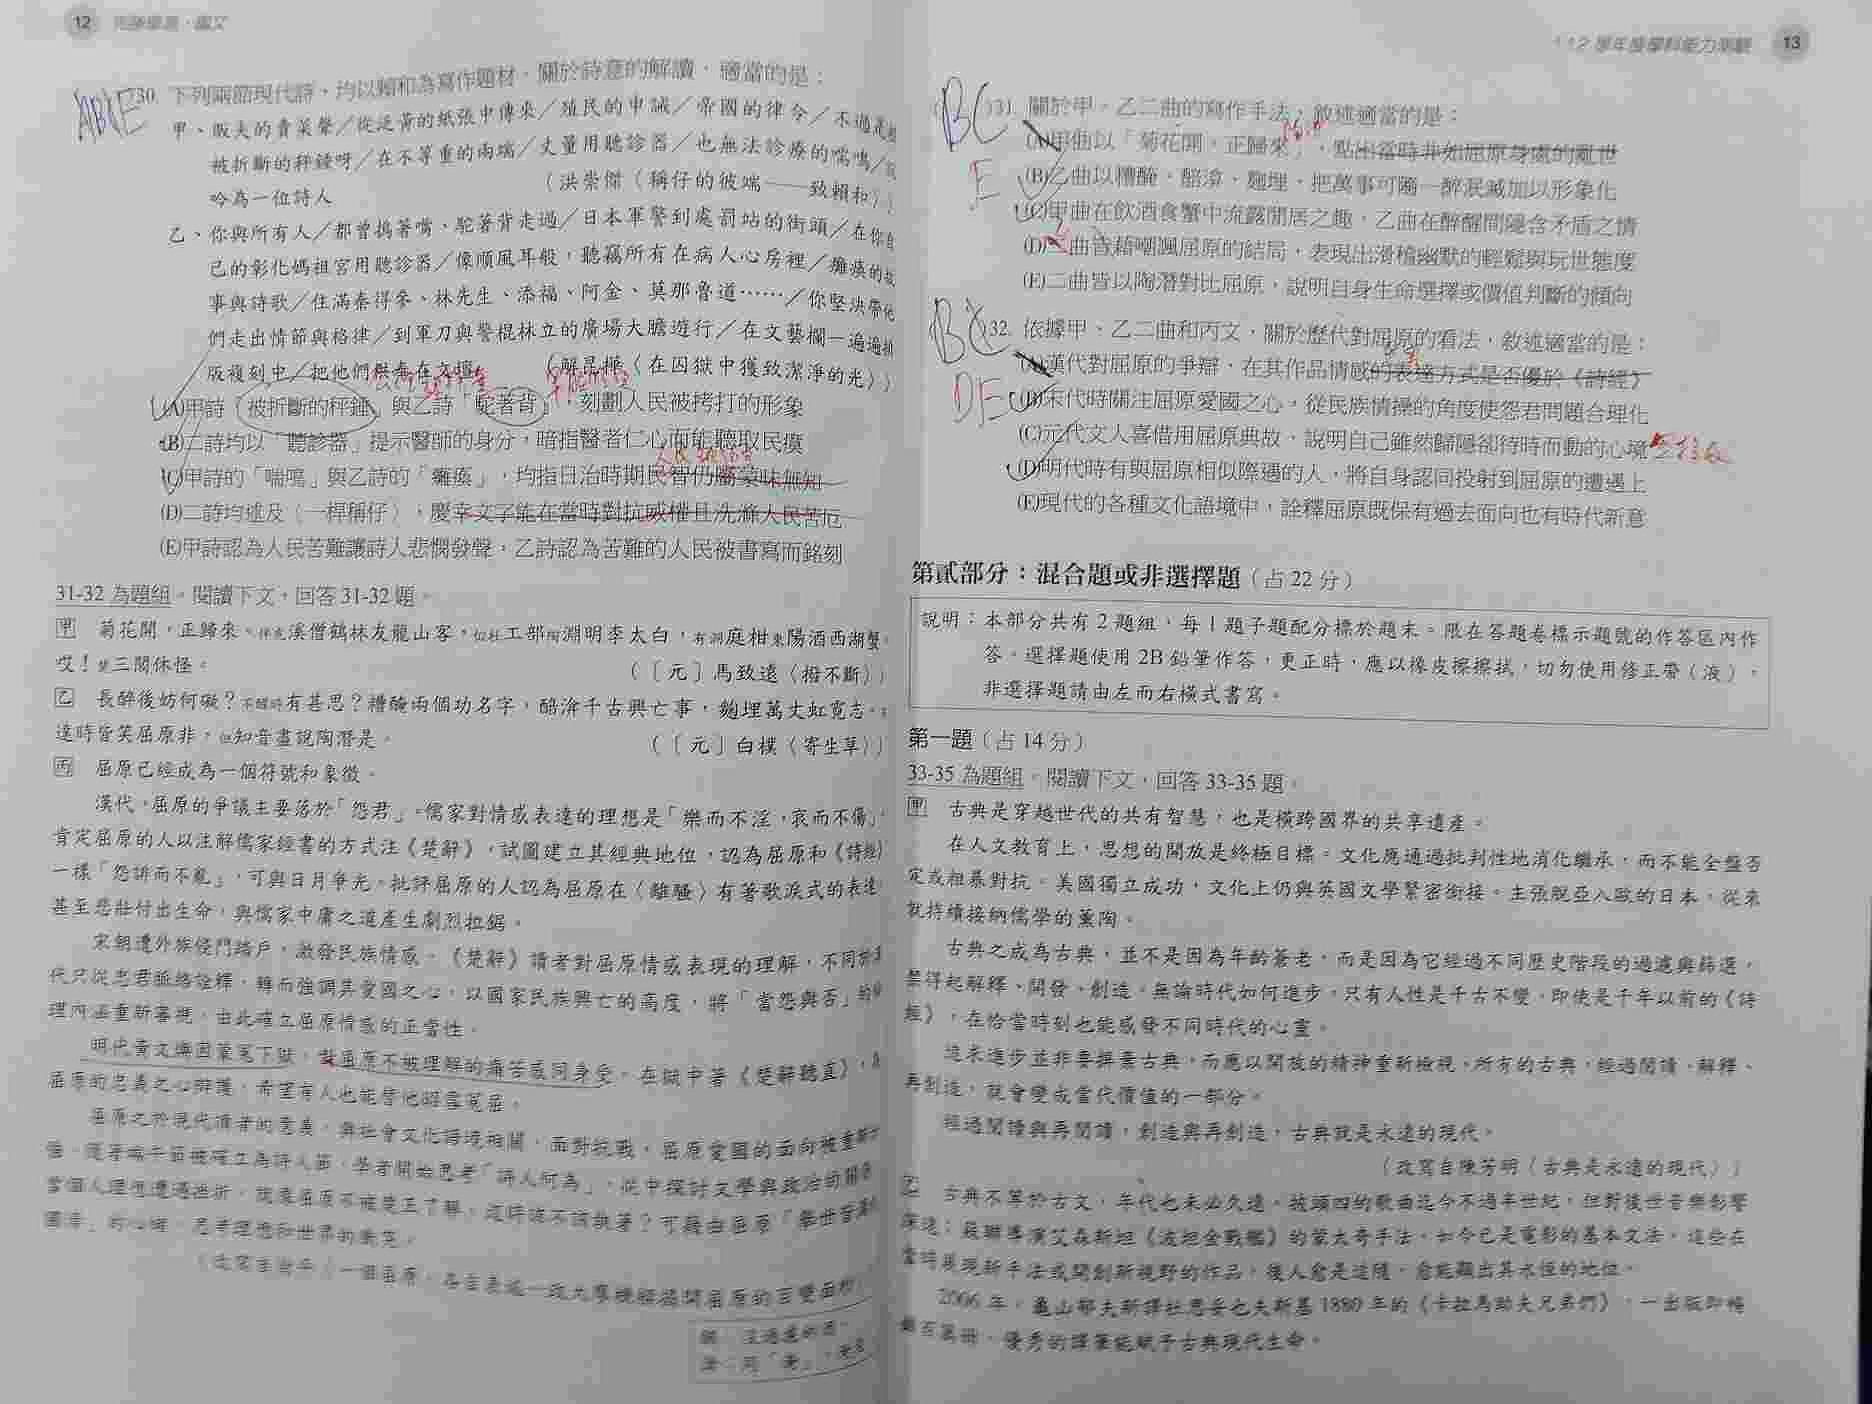 12
30. 下列兩節現代詩,均以賴和為寫作題材。關於詩意的解讀,適當的是:
甲、販夫的賣菜聲/從泛黃的紙張中傳來/殖民的申誡/帝國的律令/不過是
被折斷的秤錘呀/在不等重的兩端/丈量用聽診器/也無法診療的喘鳴/
吟為一位詩人
(洪崇傑〈稱仔的彼端——致賴和〉)
乙、你與所有人/都曾摀著嘴、駝著背走過/日本軍警到處罰站的街頭/在你自
己的彰化媽祖宮用聽診器/像順風耳般,聽竊所有在病人心房裡/癱瘓的故
事與詩歌/住滿秦得參、林先生、添福、阿金、莫那魯道……/你堅決帶他
們走出情節與格律/到軍刀與警棍林立的廣場大膽遊行/在文藝欄一遍遍排
版複刻中/把他們供奉在文壇
(解昆樺〈在囚獄中獲致潔淨的光〉)
(A)甲詩「被折斷的秤錘」與乙詩「駝著背」,刻劃人民被拷打的形象
(B)二詩均以「聽診器」提示醫師的身分,暗指醫者仁心而能聽取民瘼
(C)甲詩的「喘鳴」與乙詩的「癱瘓」,均指日治時期民智仍屬蒙昧無知
(D)二詩均述及〈一桿稱仔〉,慶幸文字能在當時對抗威權且洗滌人民苦厄
(E)甲詩認為人民苦難讓詩人悲憫發聲,乙詩認為苦難的人民被書寫而銘刻
31-32 為題組。閱讀下文,回答 31-32 題。
甲 菊花開,正歸來。伴虎溪僧鶴林友龍山客,似杜工部陶淵明李太白,有洞庭柑東陽酒西湖蟹。
哎!楚三閭休怪。
(〔元〕馬致遠〈撥不斷〉)
乙 長醉後妨何礙?不醒時有甚思?糟醃兩個功名字,醅渰千古興亡事,麴埋萬丈虹霓志。不
達時皆笑屈原非,但知音盡說陶潛是。
(〔元〕白樸〈寄生草〉)
丙 屈原已經成為一個符號和象徵。
漢代,屈原的爭議主要落於「怨君」。儒家對情感表達的理想是「樂而不淫,哀而不傷」,
肯定屈原的人以注解儒家經書的方式注《楚辭》,試圖建立其經典地位,認為屈原和《詩經》
一樣「怨誹而不亂」,可與日月爭光。批評屈原的人認為屈原在〈離騷〉有著歌淚式的表達,
甚至悲壯付出生命,與儒家中庸之道產生劇烈拉鋸。
宋朝遭外族侵門踏戶,激發民族情感。《楚辭》讀者對屈原情感表現的理解,不同於漢
代只從忠君脈絡詮釋,轉而強調其愛國之心,以國家民族興亡的高度,將「當怨與否」的
理內涵重新審視,由此確立屈原情感的正當性。
明代黃文煥因蒙冤下獄,對屈原不被理解的痛苦感同身受。在獄中著《楚辭聽直》,為
屈原的忠義之心辯護,希望有人也能替他昭雪冤屈。
屈原之於現代讀者的意義,與社會文化語境相關。面對抗戰,屈原愛國的面向被重新
,隨著端午節被確立為詩人節,學者開始思考「詩人何為」,從中探討文學與政治的關係
當個人理想遭遇挫折,就像屈原不被楚王了解,這時該不該執著?可藉由屈原「舉世皆濁
」的心境,思考理想和世界的衝突。
13
112 學年度學科能力測驗
31. 關於甲、乙二曲的寫作手法,敘述適當的是:
(A)甲曲以「菊花開,正歸來」,點出當時非如屈原身處的亂世
(B)乙曲以糟醃、醅渰、麴埋,把萬事可隨一醉泯滅加以形象化
(C)甲曲在飲酒食蟹中流露閒居之趣,乙曲在醉醒間隱含矛盾之情
(D)二曲皆藉嘲諷屈原的結局,表現出滑稽幽默的輕鬆與玩世態度
(E)二曲皆以陶潛對比屈原,說明自身生命選擇或價值判斷的傾向
32. 依據甲、乙二曲和丙文,關於歷代對屈原的看法,敘述適當的是:
(A)漢代對屈原的爭辯,在其作品情感的表達方式是否優於《詩經》
(B)宋代時關注屈原愛國之心,從民族情操的角度使怨君問題合理化
(C)元代文人喜借用屈原典故,說明自己雖然歸隱卻待時而動的心境
(D)明代時有與屈原相似際遇的人,將自身認同投射到屈原的遭遇上
(E)現代的各種文化語境中,詮釋屈原既保有過去面向也有時代新意
第貳部分:混合題或非選擇題(占 22 分)
說明:本部分共有 2 題組,每 1 題子題配分標於題末。限在答題卷標示題號的作答區內作
答。選擇題使用 2B 鉛筆作答,更正時,應以橡皮擦擦拭,切勿使用修正帶(液),
非選擇題請由左而右橫式書寫。
第一題(占 14 分)
33-35 為題組。閱讀下文,回答 33-35 題。
甲 古典是穿越世代的共有智慧,也是橫跨國界的共享遺產。
在人文教育上,思想的開放是終極目標。文化應通過批判性地消化繼承,而不能全盤否
定或粗暴對抗。美國獨立成功,文化上仍與英國文學緊密銜接。主張脫亞入歐的日本,從來
就持續接納儒學的薰陶。
古典之成為古典,並不是因為年齡蒼老,而是因為它經過不同歷史階段的過濾與篩選,
禁得起解釋、開發、創造。無論時代如何進步,只有人性是千古不變。即使是千年以前的《詩
經》,在恰當時刻也能感發不同時代的心靈。
追求進步並非要摒棄古典,而應以開放的精神重新檢視。所有的古典,經過閱讀、解釋、
再創造,就會變成當代價值的一部分。
經過閱讀與再閱讀,創造與再創造,古典就是永遠的現代。
(改寫自陳芳明〈古典是永遠的現代〉)
乙 古典不等於古文,年代也未必久遠。披頭四的歌曲迄今不過半世紀,但對後世音樂影響
深遠;蘇聯導演艾森斯坦《波坦金戰艦》的蒙太奇手法,如今已是電影的基本文法。這些在
當時展現新手法或開創新視野的作品,後人愈是追隨,愈能顯出其永恆的地位。
2006 年,龜山郁夫新譯杜思妥也夫斯基 1880 年的《卡拉馬助夫兄弟們》,一出版即暢
銷百萬冊,優秀的譯筆能賦予古典現代生命。